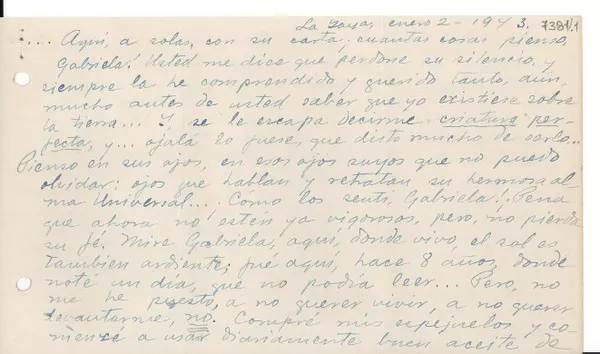 La Zaya, enero 2 - 1943. 7381/1
.... Aquí, a solas, con su carta, cuantas cosas pienso,
Gabriela! Usted me dice que perdone su silencio, y
siempre la he comprendido y querido tanto, aun,
mucho antes de usted saber que yo existiese sobre
la tierra... Y, se le escapa decirme criatura per-
fecta, y... ojalá lo fuese, que disto mucho de serlo...
Pienso en sus ojos, en esos ojos suyos que no puedo
olvidar: ojos que hablan y retratan su hermosa al-
ma Universal... ¡Cómo los sentí, Gabriela! Pena
que ahora no estén ya vigorosos, pero, no pierda
su fé. Mire Gabriela, aquí, donde vivo, el sol es
tambien ardiente; fué aquí, hace 8 años, donde
noté un día, que no podía leer... Pero, no
me he puesto, a no querer vivir, a no querer
levantarme, no. Compré mis espejuelos y co-
mencé a usar diariamente buen aceite de